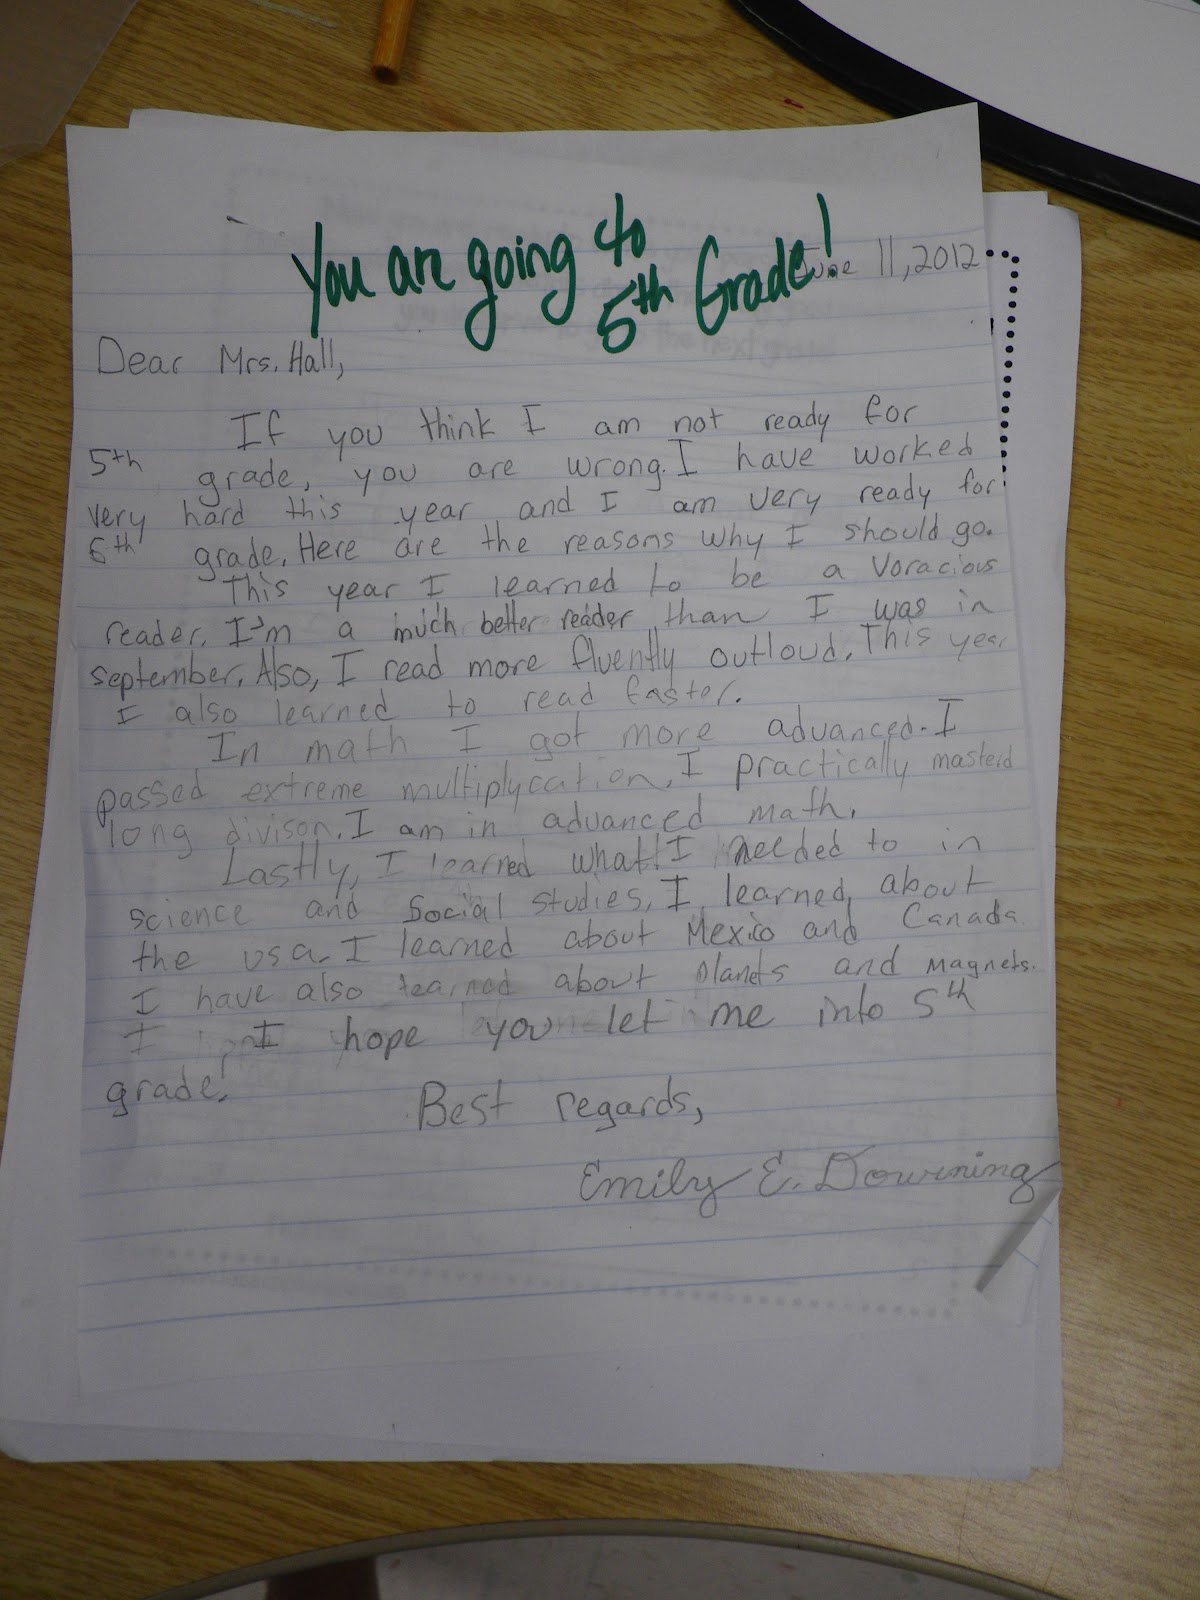 You are going to
5th Grade!
June 11, 2012
Dear Mrs. Hall,
If you think I am not ready for
5th grade, you are wrong. I have worked
very hard this year and I am very ready for
5th grade. Here are the reasons why I should go.
This year I learned to be a voracious
reader. I'm a much better reader than I was in
september. Also, I read more fluently outloud. This year
I also learned to read faster.
In math I got more advanced. I
passed extreme multiplycation. I practically masterd
long divison. I am in advanced math.
Lastly, I learned what I needed to in
science and Social studies. I learned about
the usa. I learned about Mexico and Canada.
I have also learned about planets and magnets.
I I hope you let me into 5th
grade!
Best regards,
Emily E. Downing